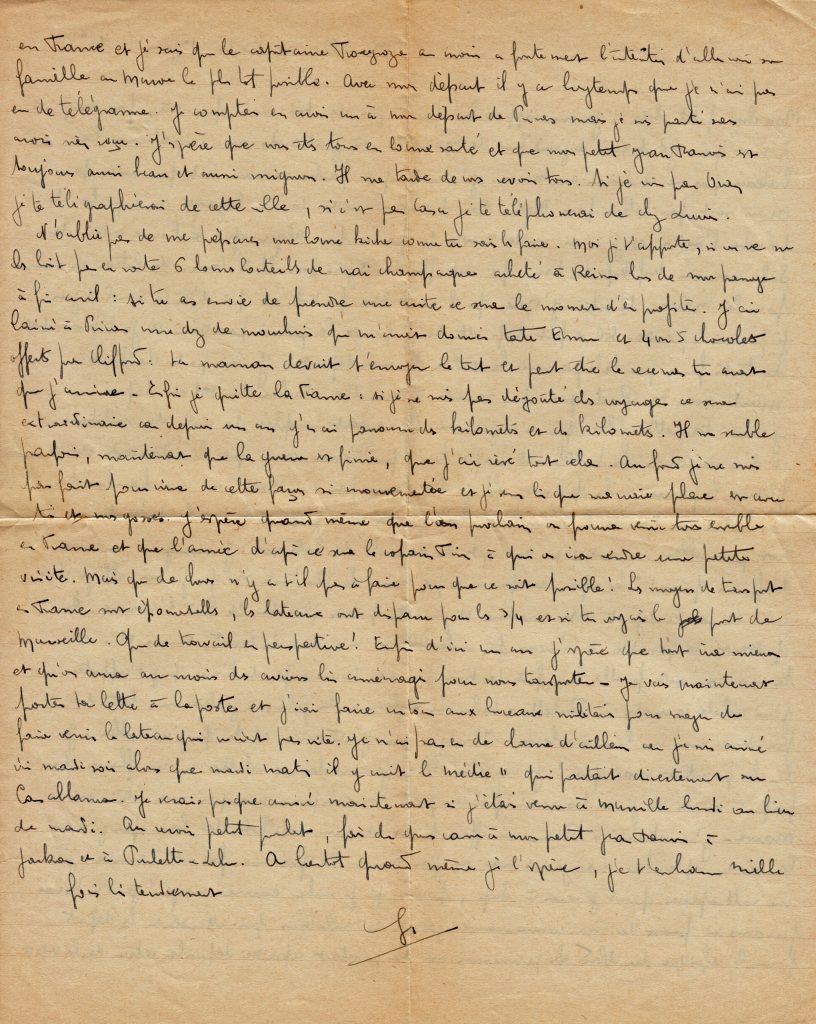 en France et je sais que le capitaine au moins a fortement l'intention d'aller voir sa
famille au Maroc le plus tôt possible. Avec mon départ il y a longtemps que je n'ai pas
eu de télégramme. Je comptais en avoir un à mon départ de mais je suis parti sans
avoir rien reçu. J'espère que vous êtes tous en bonne santé et que mon petit Jean Francis est
toujours aussi beau et aussi mignon. Il me tarde de vous revoir tous. Si je vais par Oran
je te télégraphierai de cette ville, si c'est par Casa je te téléphonerai de chez
N'oublie pas de me préparer une bonne comme tu sais le faire. Moi je t'apporte, si on ne me
les boit pas en route 6 bonnes bouteilles de vrai champagne acheté à Reims lors de mon passage
à fin avril : si tu as envie de prendre une cuite ce sera le moment d'en profiter. J'ai
laissé à une dz de mouchoirs que m'avait donnés tate et 4 ou 5 chocolats
offerts par Clifford : ta maman devait t'envoyer le tout et peut être le recevras tu avant
que j'arrive. Enfin je quitte la France : si je ne suis pas dégouté des voyages ce sera
extraordinaire car depuis un an j'en ai parcouru des kilomèts et des kilomèts. Il me semble
parfois, maintenant que la guerre est finie, que j'ai rêvé tout cela. Au fond je ne suis
pas fait pour vivre de cette façon si mouvementée et je sens bi que ma vraie place est avec
toi et nos gosses. J'espère quand même que l'an prochain on pourra venir tous ensemble
en France et que l'année d'après ce sera le copain Tim à qui on ira rendre une petite
visite. Mais que de choses n'y a t'il pas à faire pour que ce soit possible! Les moyens de transport
en France sont épouvantables, les bateaux ont disparu pour les 3/4 et si tu voyais le port de
Marseille. Que de travail en perspective! Enfin d'ici un an j'espère que tout ira mieux
et qu'on aura au moins des avions bi aménagés pour nous transporter - Je vais maintenant
porter ta lettre à la poste et j'irai faire un tour aux bureaux militaires pour essayer de
faire venir le bateau qui ne vient pas vite. Je n'ai pas eu de chance d'ailleurs car je suis arrivé
ici mardi soir alors que mardi matin il y avait le "Médie II" qui partait directement sur
Casablanca. Je serais presque arrivé maintenant si j'étais venu à Marseille lundi au lieu
de mardi. Au revoir petit poulet, fais de gros à mon petit Jean Francis à
et à Paulette A bientôt quand même je l'espère, je t'embrasse mille
fois bi tendrement